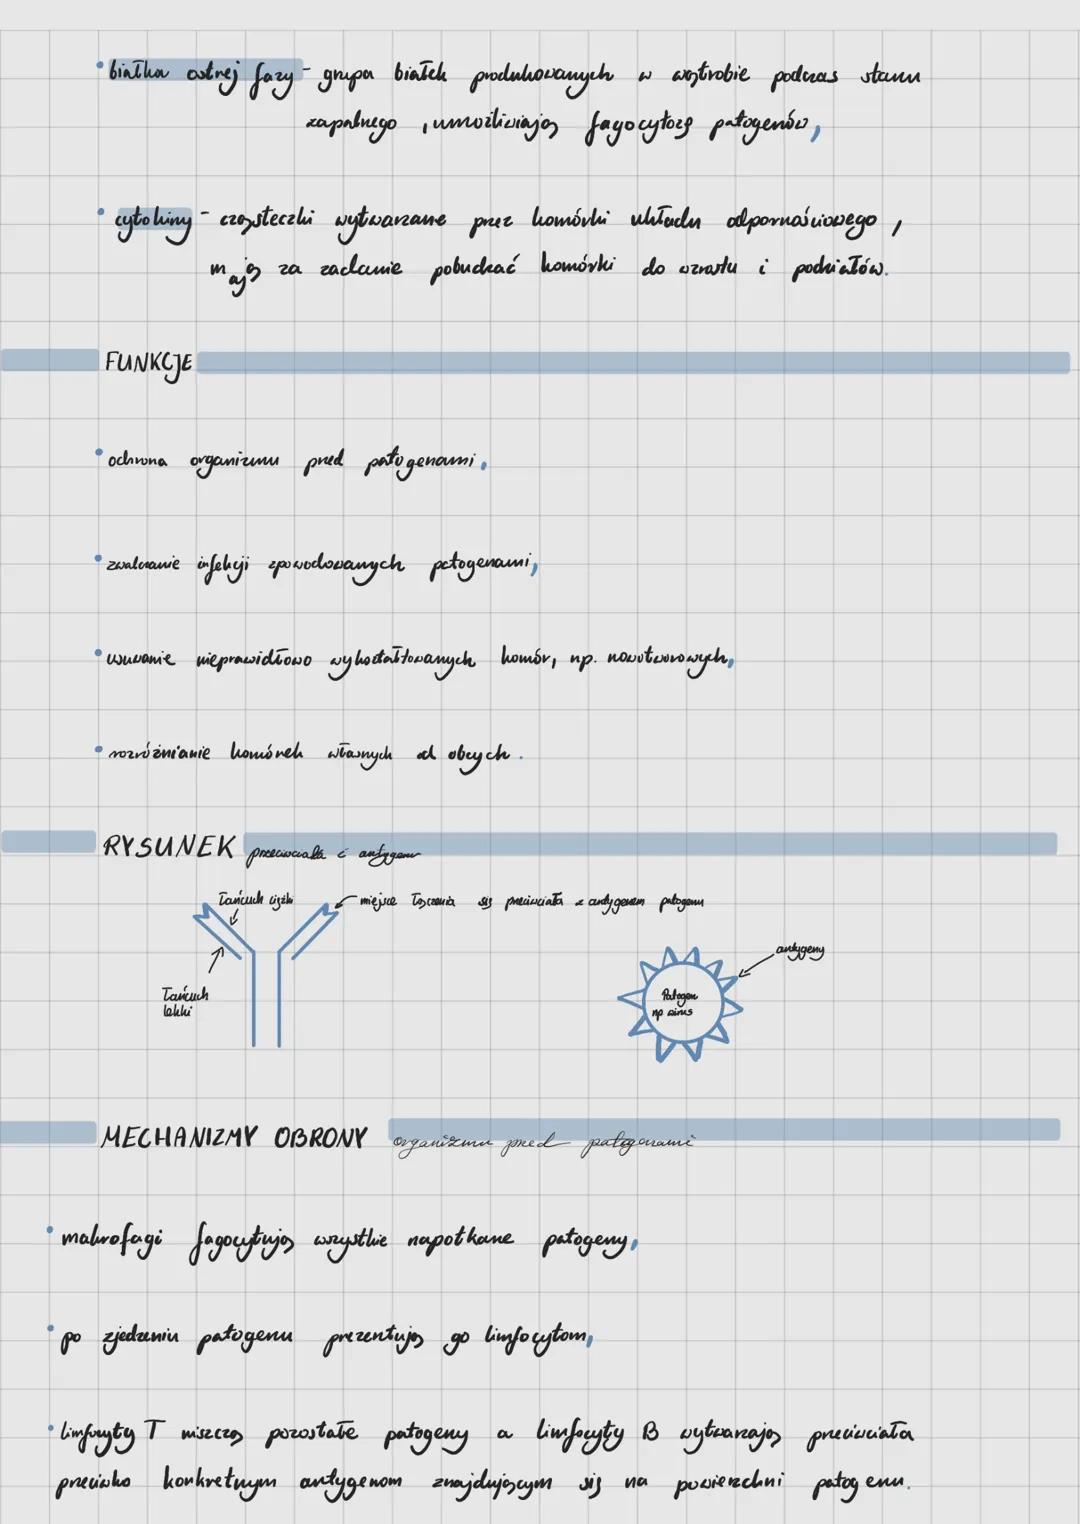 • białka ostrej fazy - grupa białek produkowanych w wątrobie podczas stanu
zapalnego, umożliwiają fagocytozę patogenów,
• cytokiny - cząsteczki wytwarzane przez komórki układu odpornościowego,
mają za zadanie pobudzać komórki do wzrostu i podziałów.
FUNKCJE
• ochrona organizmu przed patogenami,
• zwalczanie infekcji spowodowanych patogenami,
• usuwanie nieprawidłowo wykształtowanych komór, np. nowotworowych,
• rozróżnianie komórek własnych od obcych.
RYSUNEK przeciwciała i antygenu
łańcuch ciężki
miejsce łączenia się przeciwciała z antygenem patogenu
antygeny
łańcuch
lekki
Patogen
np wirus
MECHANIZMY OBRONY organizmu przed patogenami
• makrofagi fagocytują wszystkie napotkane patogeny,
• po zjedzeniu patogenu prezentują go limfocytom,
• limfocyty T niszczą pozostałe patogeny a limfocyty B wytwarzają przeciwciała
przeciwko konkretnym antygenom znajdującym się na powierzchni patogenu.